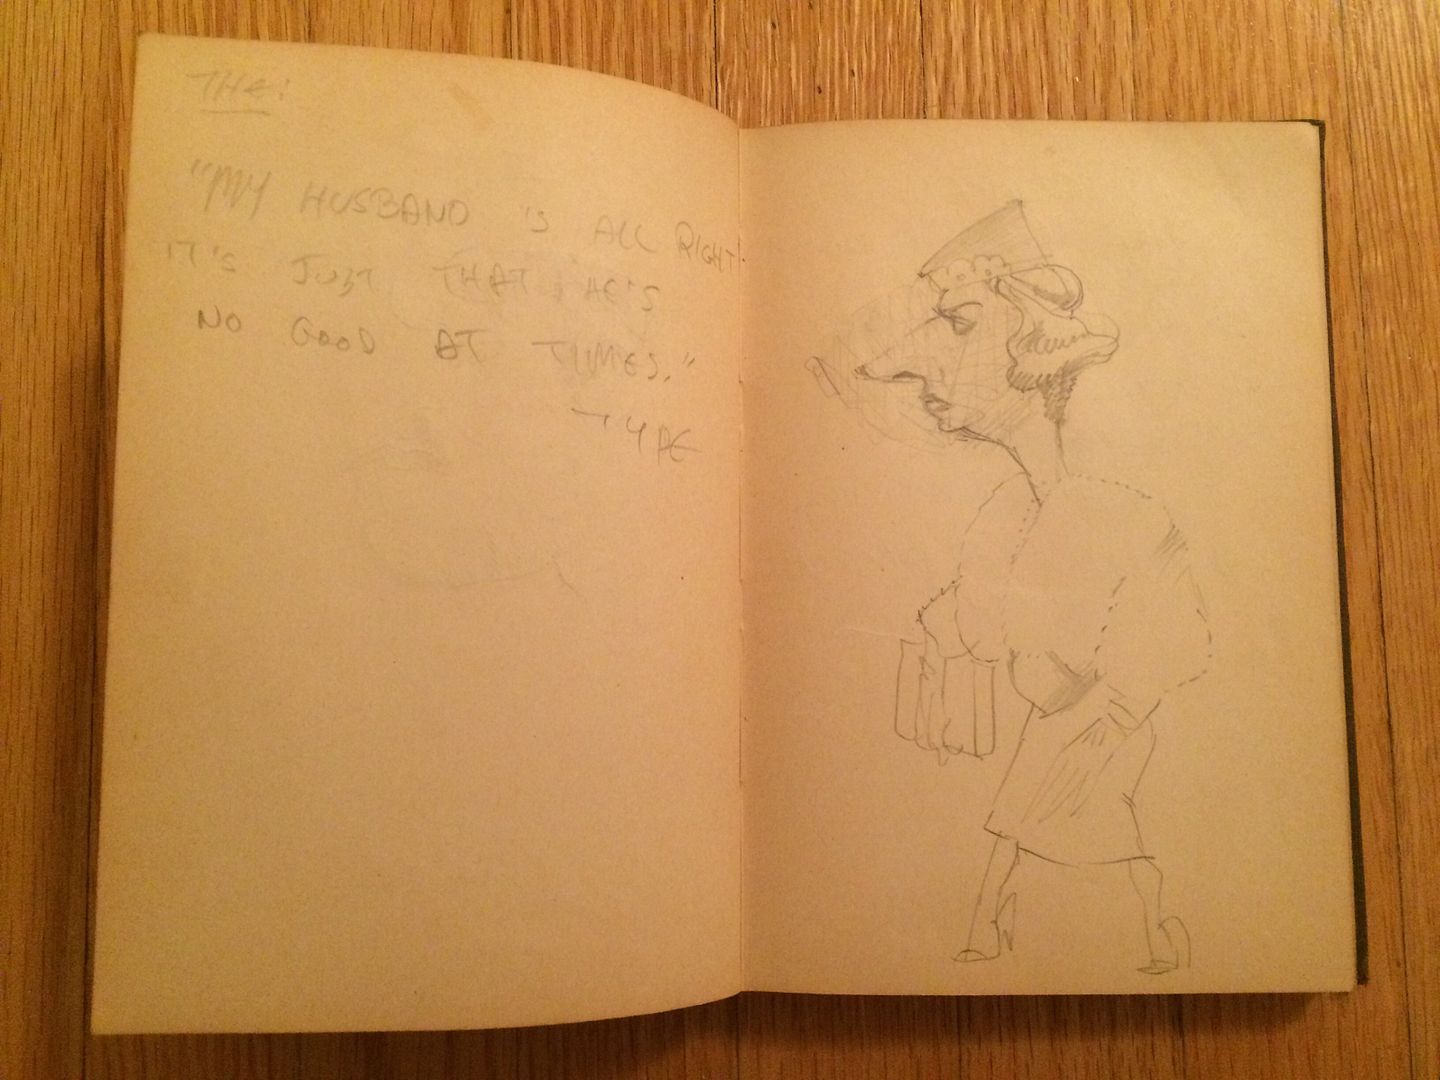 THE:
"MY HUSBAND IS ALL RIGHT!
IT'S JUST THAT HE'S
NO GOOD AT TIMES."
TYPE